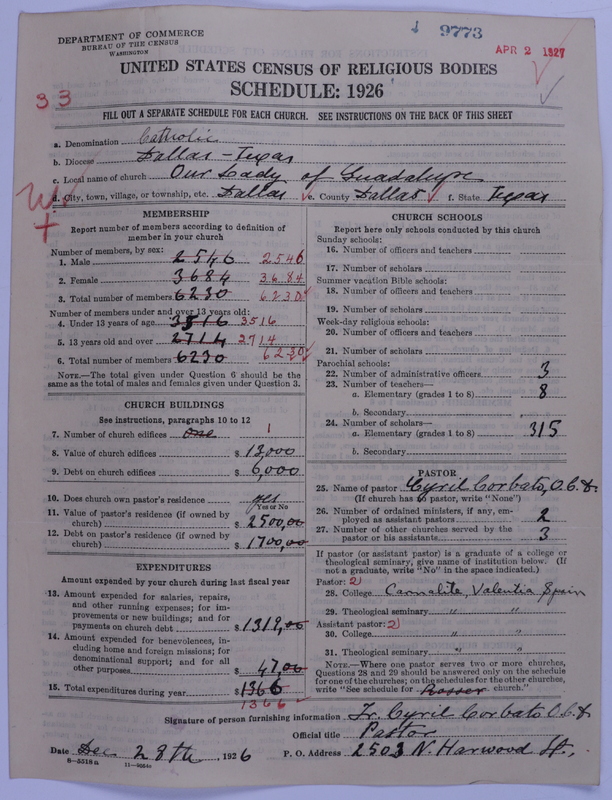 9773
DEPARTMENT OF COMMERCE
BUREAU OF THE CENSUS
WASHINGTON
APR 2 1927
UNITED STATES CENSUS OF RELIGIOUS BODIES
SCHEDULE: 1926
33
FILL OUT A SEPARATE SCHEDULE FOR EACH CHURCH. SEE INSTRUCTIONS ON THE BACK OF THIS SHEET
a. Denomination Catholic
b. Diocese Dallas - Texas
c. Local name of church Our Lady of Guadalupe
d. City, town, village, or township, etc. Dallas e. County Dallas f. State Texas
MEMBERSHIP
Report number of members according to definition of
member in your church
Number of members, by sex:
1. Male 2546 2546
2. Female 3684 3684
3. Total number of members 6230 6230
Number of members under and over 13 years old:
4. Under 13 years of age 3516 3516
5. 13 years old and over 2714 2714
6. Total number of members 6230 6230
NOTE.—The total given under Question 6 should be the
same as the total of males and females given under Question 3.
CHURCH BUILDINGS
See instructions, paragraphs 10 to 12
7. Number of church edifices one 1
8. Value of church edifices $ 13,000
9. Debt on church edifices $ 6,000
10. Does church own pastor's residence yes
Yes or No
11. Value of pastor's residence (if owned by
church) $ 2500,00
12. Debt on pastor's residence (if owned by
church) $ 1700,00
EXPENDITURES
Amount expended by your church during last fiscal year
13. Amount expended for salaries, repairs,
and other running expenses; for im-
provements or new buildings; and for
payments on church debt $ 1319,00
14. Amount expended for benevolences, in-
cluding home and foreign missions; for
denominational support; and for all
other purposes $ 47,00
15. Total expenditures during year $ 1366
1366
CHURCH SCHOOLS
Report here only schools conducted by this church
Sunday schools:
16. Number of officers and teachers
17. Number of scholars
Summer vacation Bible schools:
18. Number of officers and teachers
19. Number of scholars
Week-day religious schools:
20. Number of officers and teachers
21. Number of scholars
Parochial schools:
22. Number of administrative officers 3
23. Number of teachers—
a. Elementary (grades 1 to 8) 8
b. Secondary
24. Number of scholars—
a. Elementary (grades 1 to 8) 315
b. Secondary
PASTOR
25. Name of pastor Cyril Corbato, O.C.D.
(If church has no pastor, write "None")
26. Number of ordained ministers, if any, em-
ployed as assistant pastors 2
27. Number of other churches served by the
pastor or his assistants 3
If pastor (or assistant pastor) is a graduate of a college or
theological seminary, give name of institution below. (If
not a graduate, write "No" in the space indicated.)
Pastor: 2
28. College Carmalite, Valentia Spain
29. Theological seminary " "
Assistant pastor: 2
30. College " "
31. Theological seminary " "
NOTE.—Where one pastor serves two or more churches,
Questions 28 and 29 should be answered only on the schedule
for one of the churches; on the schedules for the other churches,
write "See schedule for church."
Signature of person furnishing information Fr. Cyril Corbato, O.C.D.
Official title Pastor
Date Dec 28th, 1926 P. O. Address 2503 N. Harwood St.,
8—5518a 11—9864